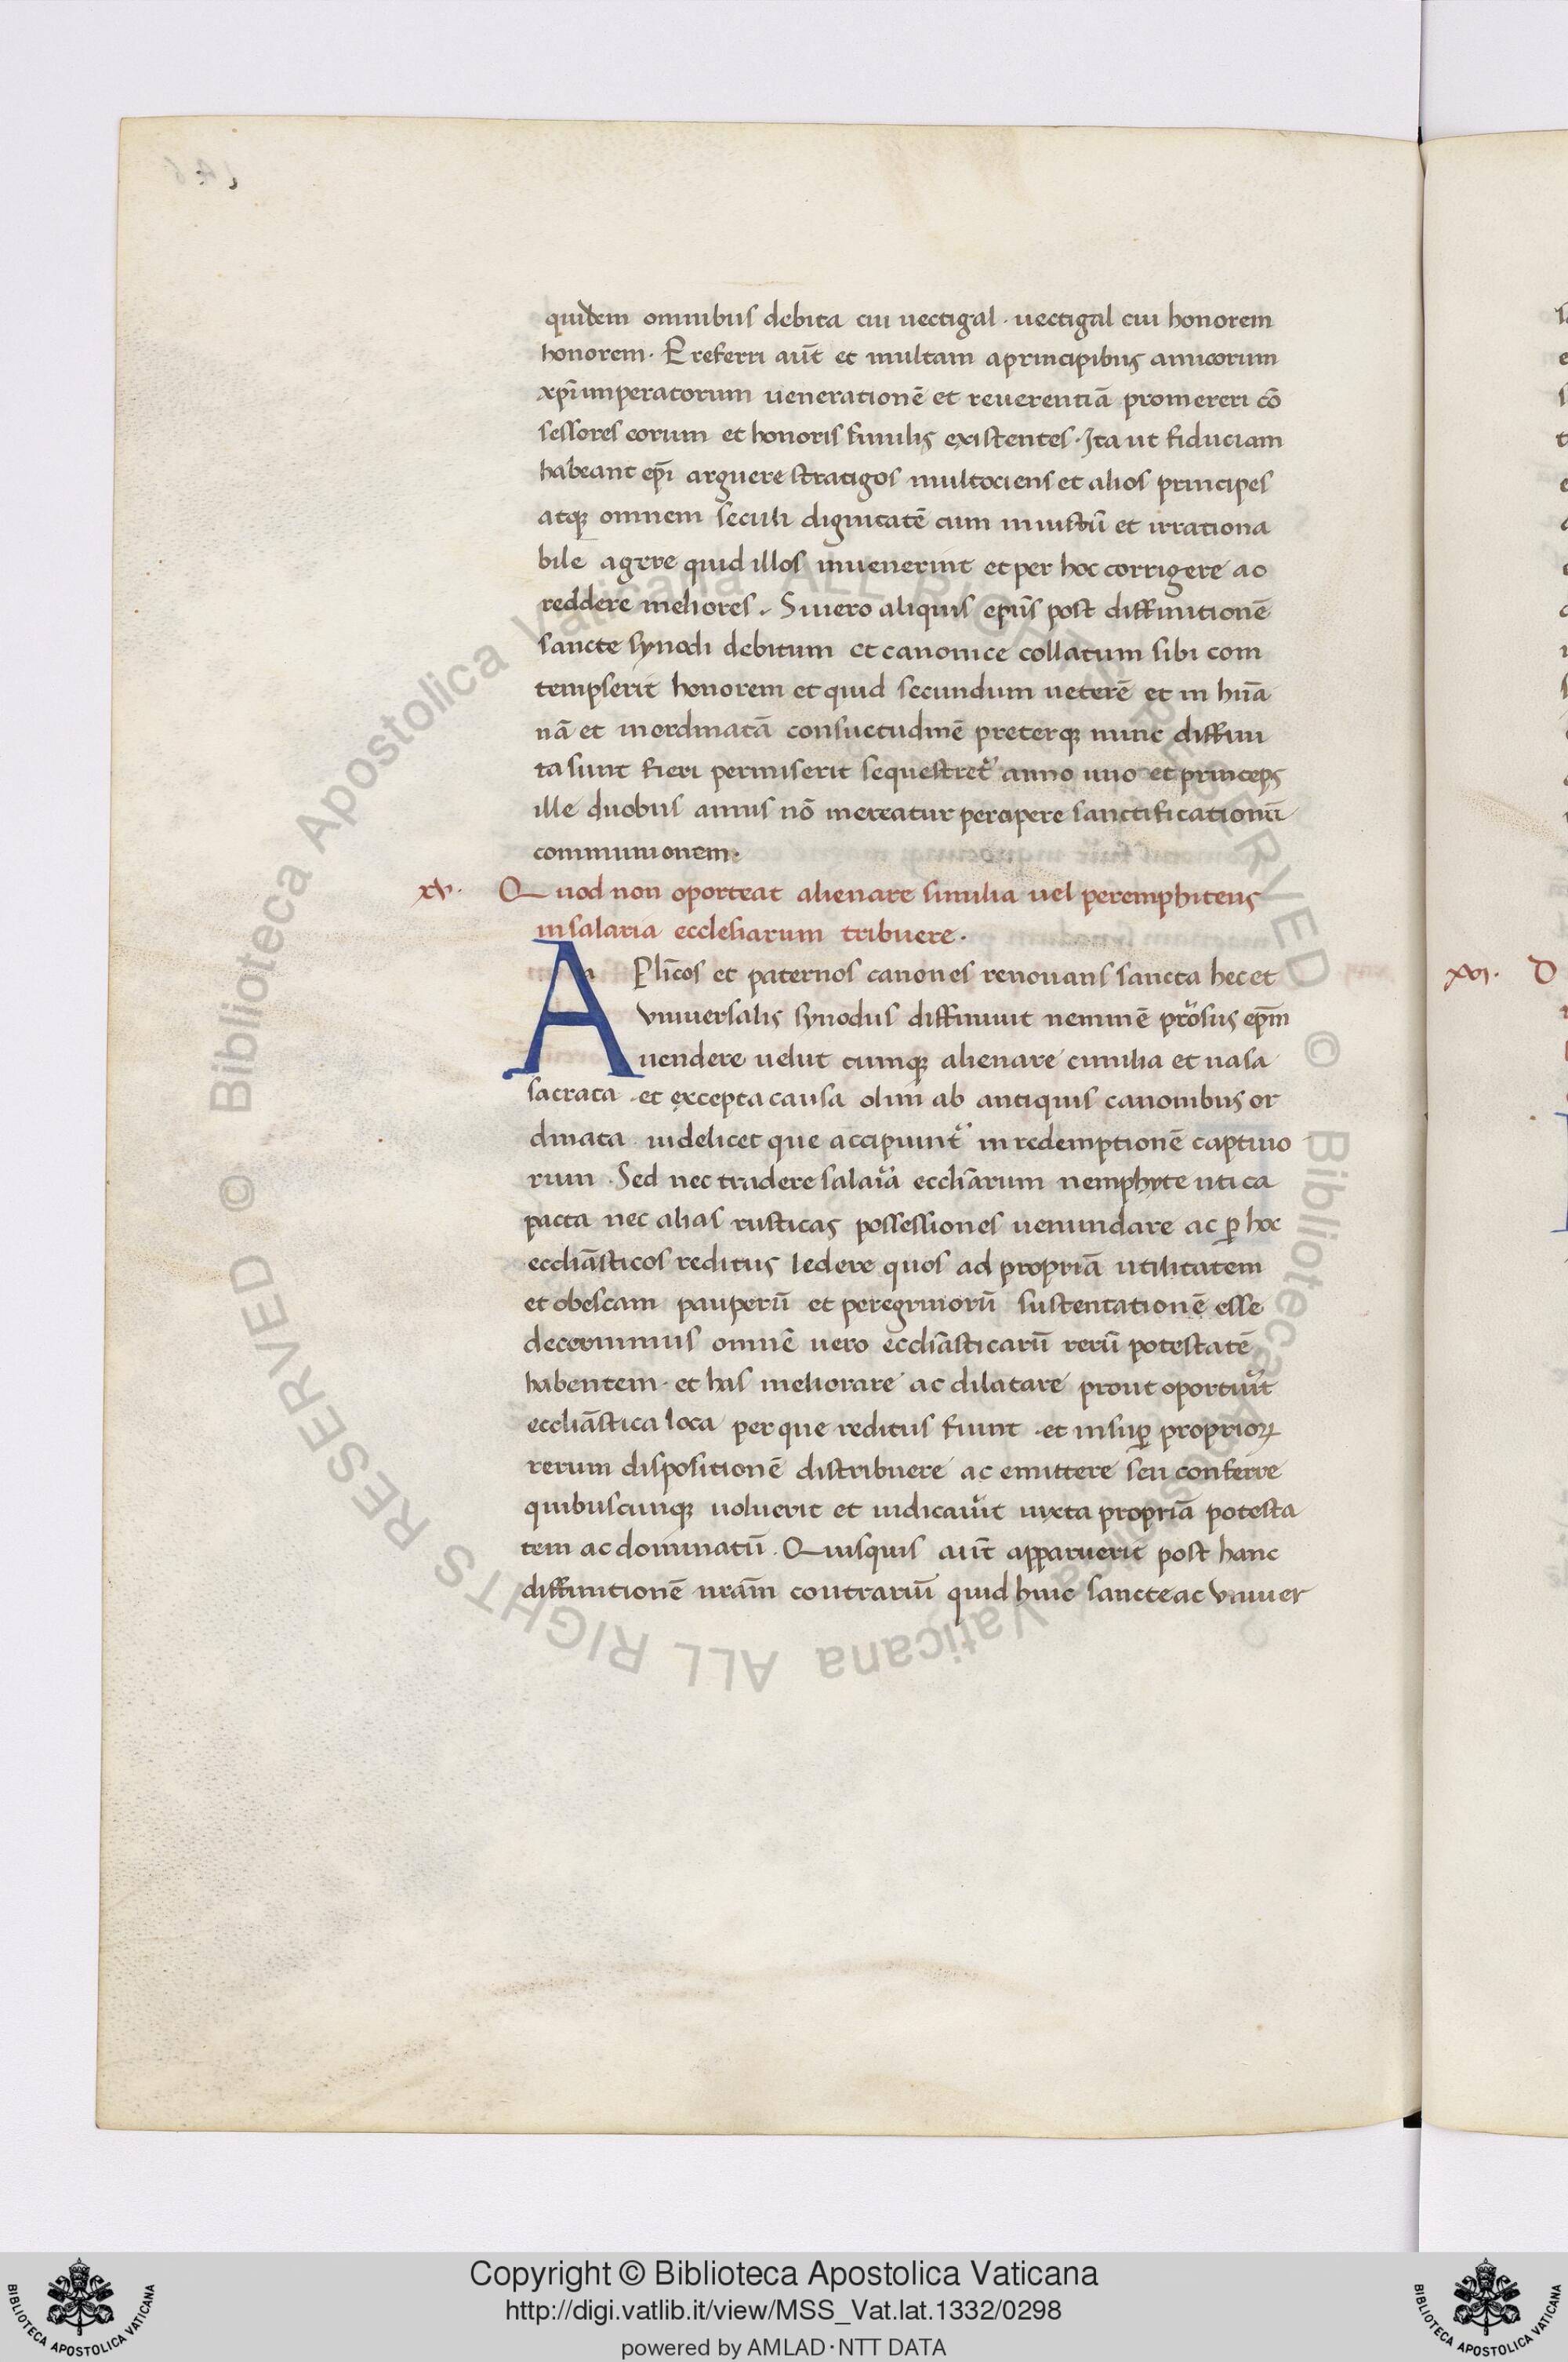 quidem omnibus debita cui uectigal · uectigal cui honorem
honorem · Preferri aut̄ et multam aprincipibus amicorum
xp̄i imperatorum uenerationē et reuerentiā promereri cō
sessores eorum et honoris similis existentes · Ita ut fiduciam
habeant ep̄i arguere stratigos multociens et alios principes
atq; omnem seculi dignitatē cum iniustū et irrationa
bile agere quid illos inuenerint et per hoc corrigere ac
reddere meliores . Siuero aliquis ep̄us post diffinitionē
sancte synodi debitum et canonice collatum sibi com
tempserit honorem et quid secundum ueterē et in hūa
nā et inordinatā consuetudinē preterq; nunc diffini
ta sunt fieri permiserit sequestret᷑ anno uno et princeps
ille duobus annis nō mereatur percipere sanctificationū
communionem ·
xv · Quod non oporteat alienare similia uel peremphiteus
in salaria ecclesiarum tribuere ·
A Plīcos et paternos canones renouans sancta hec et
vniuersalis synodus diffiniuit neminē prorsus ep̄m
uendere uelut cumq; alienare cimilia et uasa
sacrata · et excepta causa olim ab antiquis canonibus or
dinata · uidelicet que accipiunt᷑ in redemptionē captiuo
rum · Sed nec tradere salaria eccliārum nemphyte uti ca
pacta nec alias rusticas possessiones uenundare ac p̱ hoc
eccliāsticos reditus ledere quos ad propriā utilitatem
et obescam pauperū et peregrinorū sustentationē esse
decernimus omnē uero eccliāsticarū rerū potestatē
habentem · et has meliorare ac dilatare prout oportuerit
eccliāstica loca per que reditus fiunt · et insup̱ proprioꝝ
rerum dispositionē distribuere ac emittere seu conferre
quibuscunq; uoluerit et iudicauerit iuxta propriā potesta
tem ac dominatū · Quisquis aut̄ apparuerit post hanc
diffinitionē nrām contrariū quid huic sancte ac vniuer
xvi · D
Copyright © Biblioteca Apostolica Vaticana
http://digi.vatlib.it/view/MSS_Vat.lat.1332/0298
powered by AMLAD·NTT DATA
© Biblioteca Apostolica Vaticana ALL RIGHTS RESERVED
© Biblioteca Apostolica Vaticana ALL RIGHTS RESERVED
BIBLIOTECA APOSTOLICA VATICANA
BIBLIOTECA APOSTOLICA VATICANA